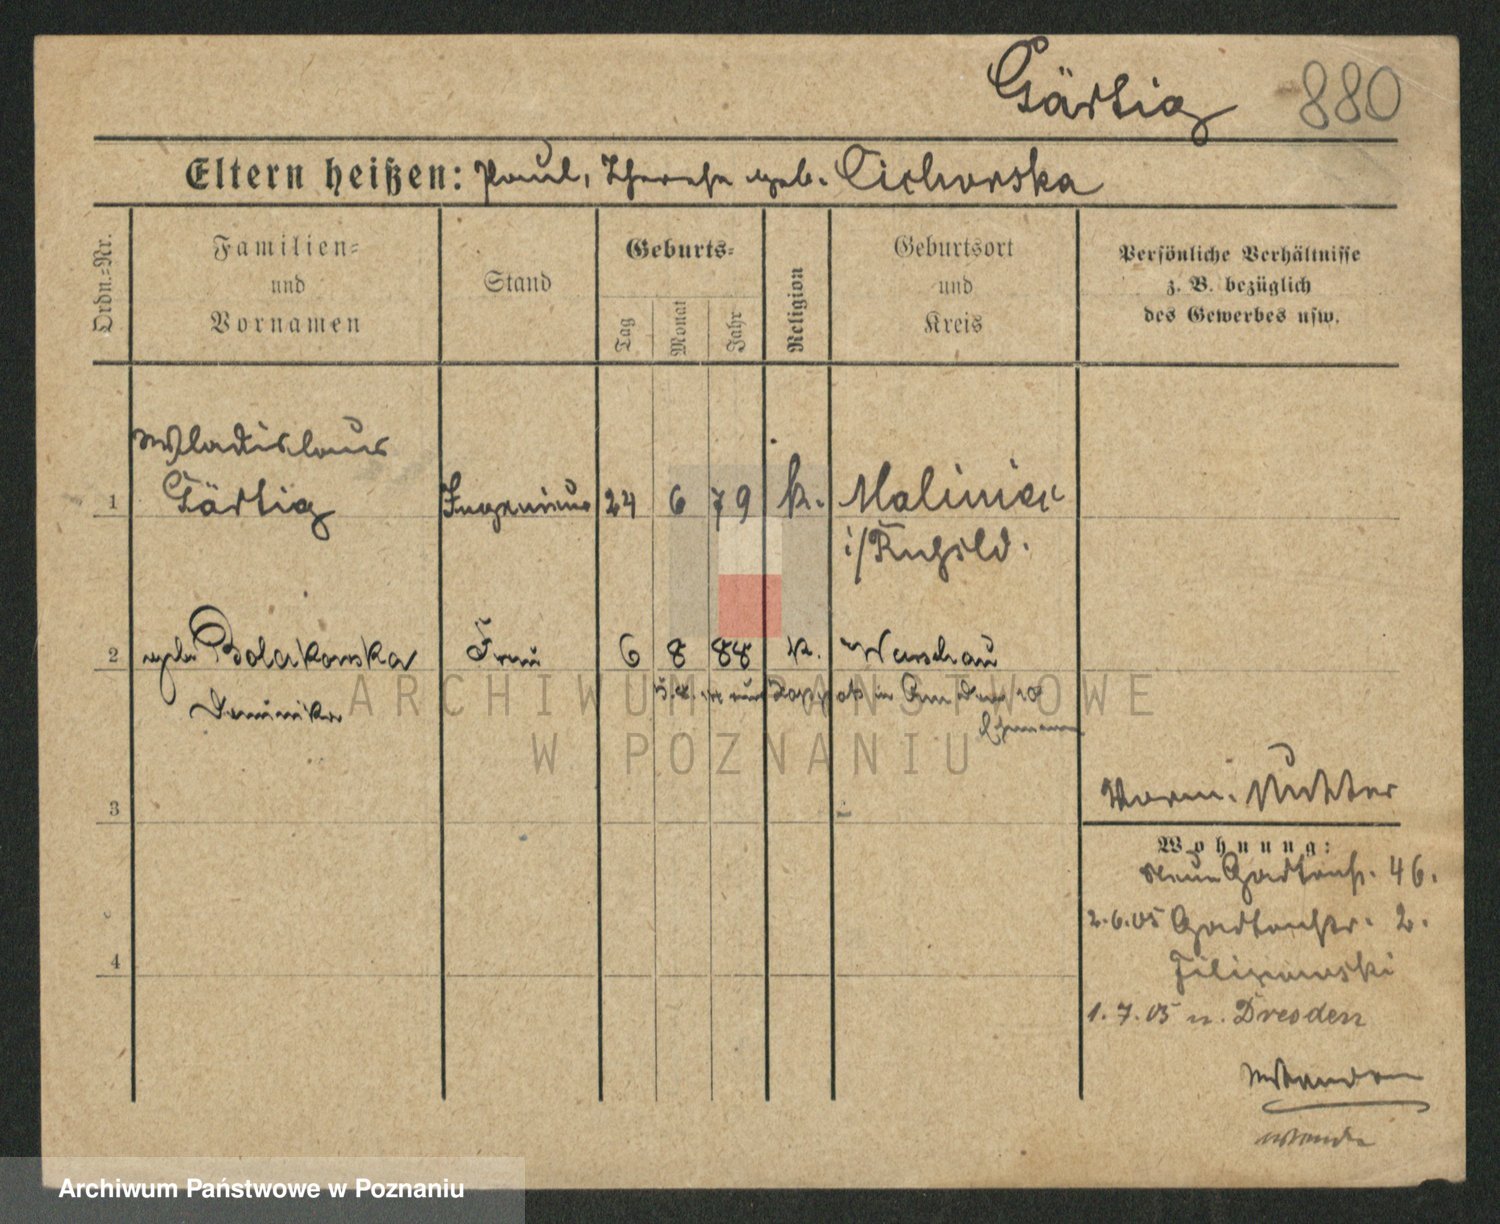 Gärtig 880
Eltern heißen: Paul, Therese geb. Cichorska
Ordn.=Nr.
Familien=
und
Vornamen
Stand
Geburts=
Tag
Monat
Jahr
Religion
Geburtsort
und
Kreis
Persönliche Verhältnisse
z. B. bezüglich
des Gewerbes usw.
Wladislaus
1 Gärtig Ingenieur 24 6 79 k. Malinie
i/Rußld.
2 geb. Frau 6 8 88 k. Warschau
Dominika
ARCHIWUM PAŃSTWOWE
W POZNANIU
3
Vorm. Mutter
Wohnung:
Neue Gartenstr. 46.
2.6.05 Gartenstr. 2.
4
Filipowski
1.7.05 n. Dresden
Archiwum Państwowe w Poznaniu